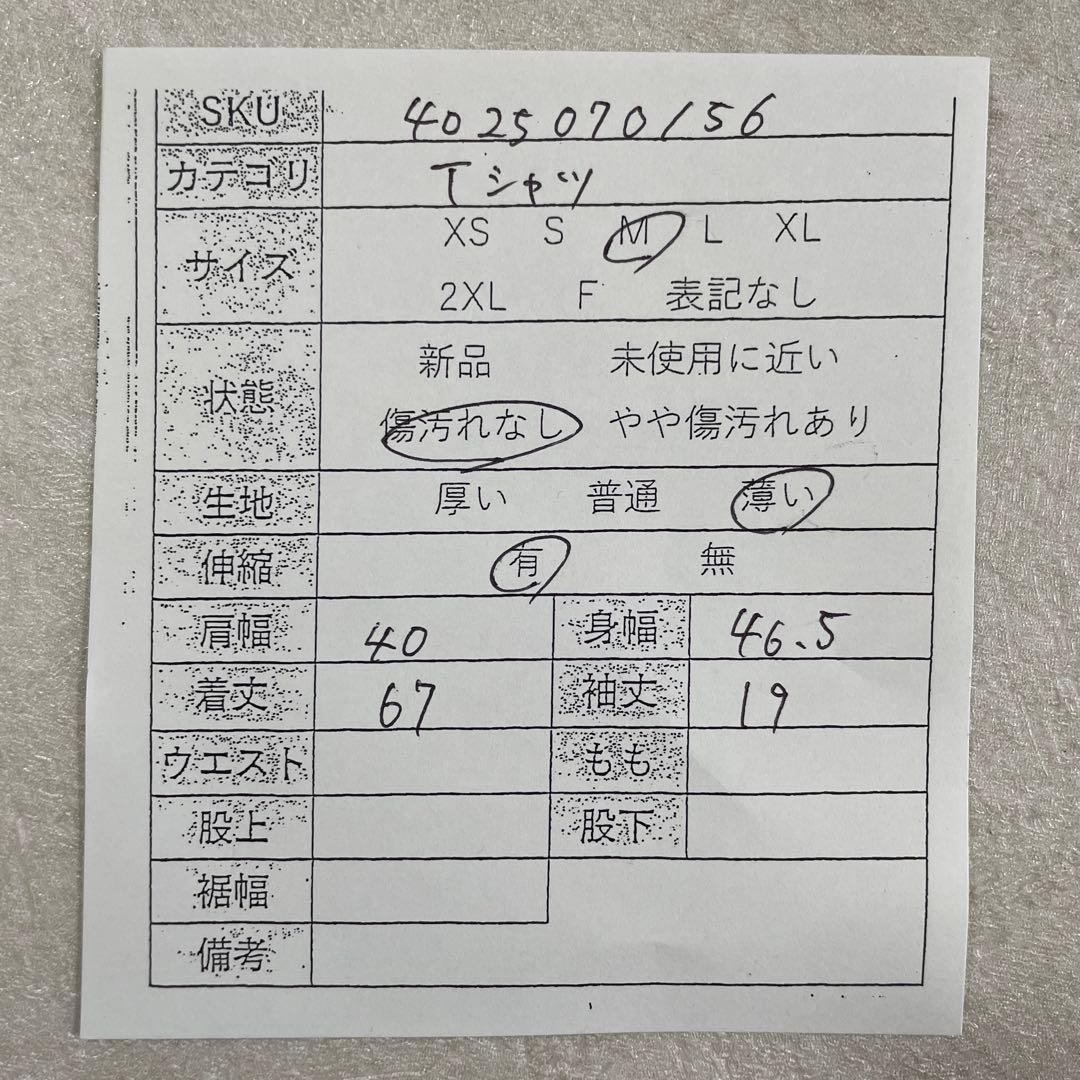 SKU 4025070156
カテゴリ Tシャツ
サイズ XS S M L XL
2XL F 表記なし
状態 新品 未使用に近い
傷汚れなし やや傷汚れあり
生地 厚い 普通 薄い
伸縮 有 無
肩幅 40 身幅 46.5
着丈 67 袖丈 19
ウエスト もも
股上 股下
裾幅
備考